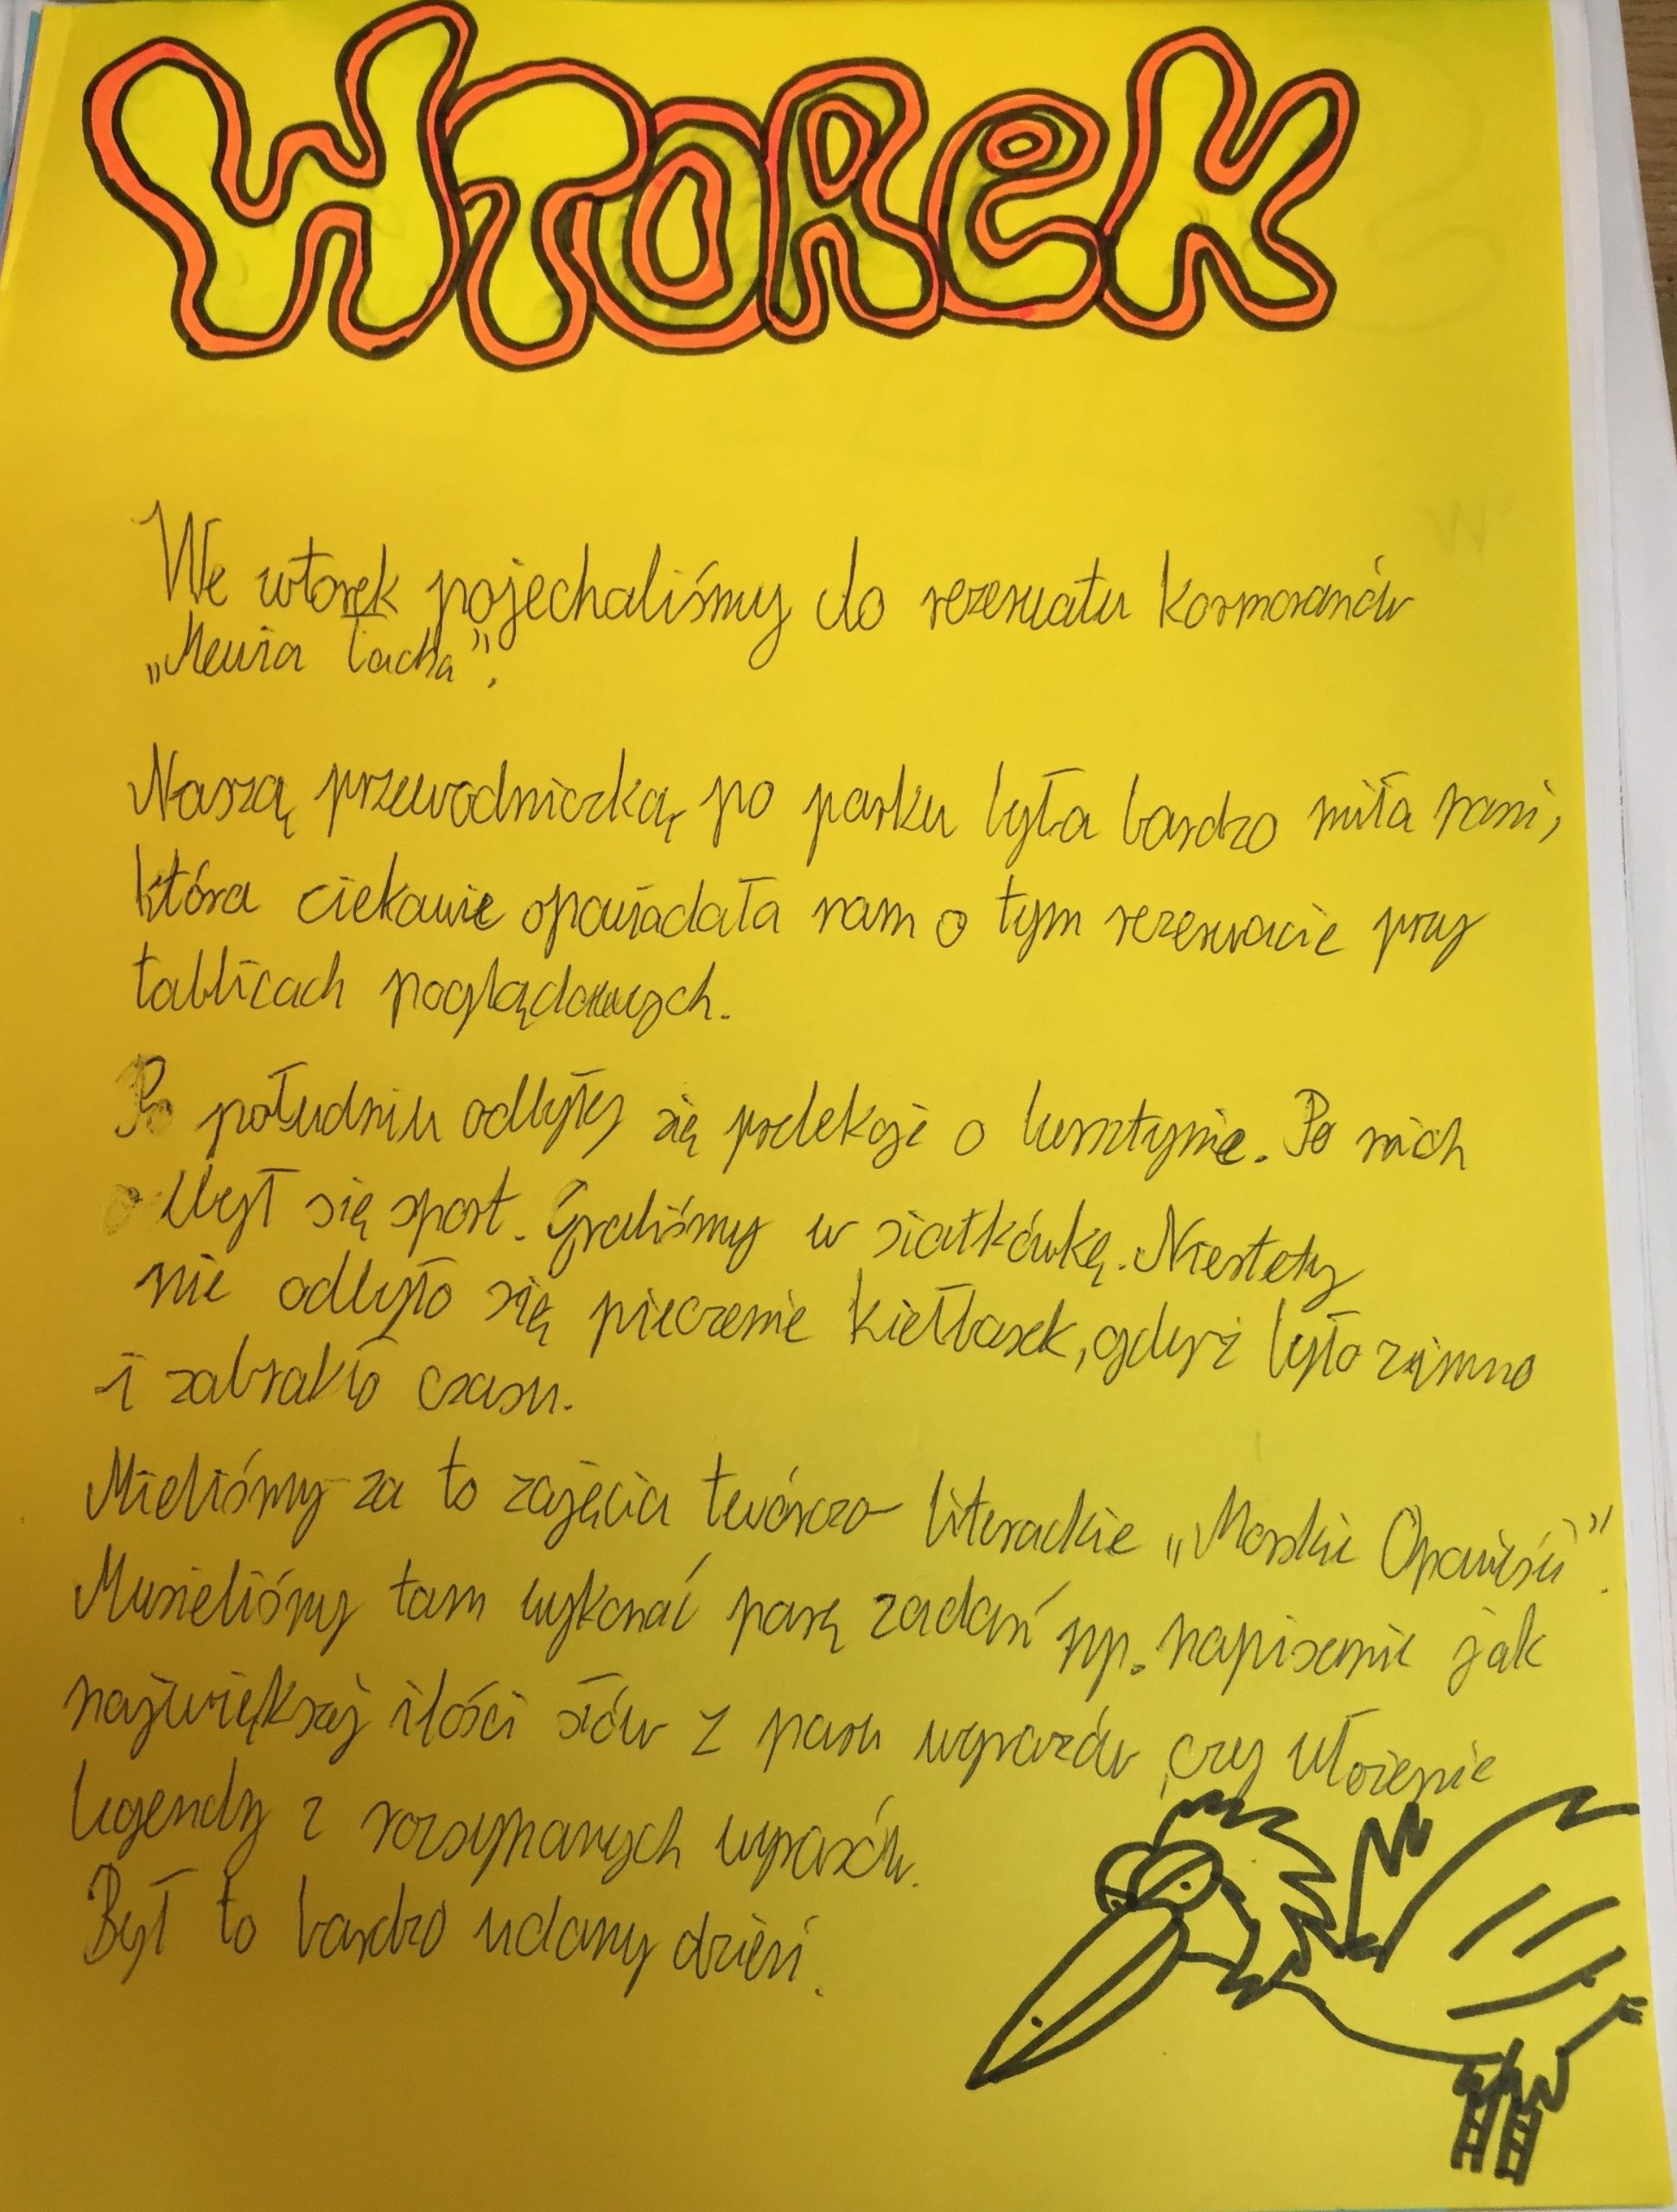 WTOREK
We wtorek pojechaliśmy do rezerwatu kormoranów
„Mewia Łacha”.
Naszą przewodniczką, po parku była bardzo miła pani,
która ciekawie opowiadała nam o tym rezerwacie przy
tablicach poglądowych.
Po południu odbyły się prelekcje o bursztynie. Po nich
odbył się sport. Graliśmy w siatkówkę. Niestety
nie odbyło się pieczenie kiełbasek, gdyż było zimno
i zabrakło czasu.
Mieliśmy za to zajęcia twórczo-literackie „Morskie Opowieści”.
Musieliśmy tam wykonać parę zadań np. napisanie jak
największej ilości słów z paru wyrazów, czy ułożenie
legendy z rozsypanych wyrazów.
Był to bardzo udany dzień.